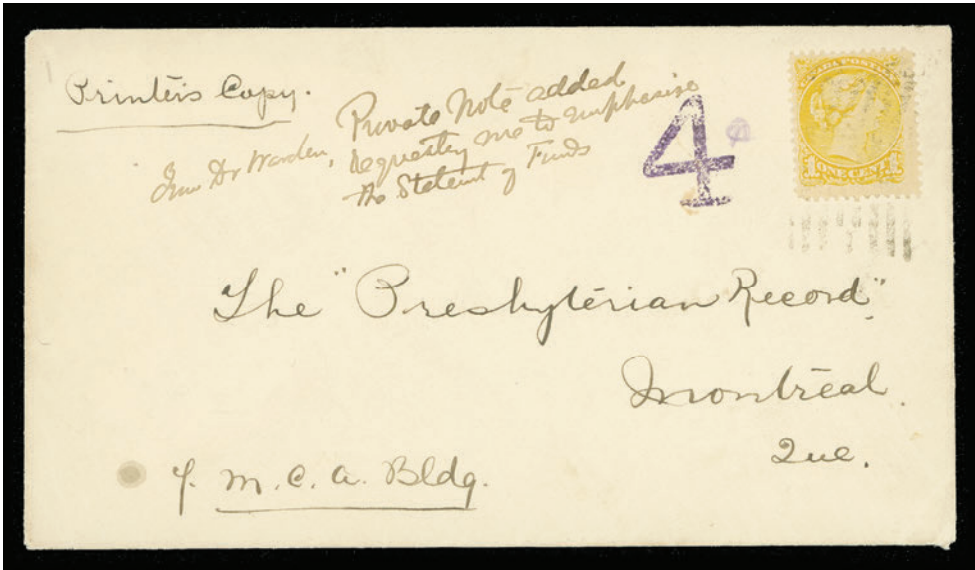 Printer's Copy.
from Dr Warden, Private Note added
requesting me to emphasise
the Statemt of Funds
4
CANADA POSTAGE
ONE CENT
The "Presbyterian Record"
Montreal.
Que.
Y. M. C. A. Bldg.